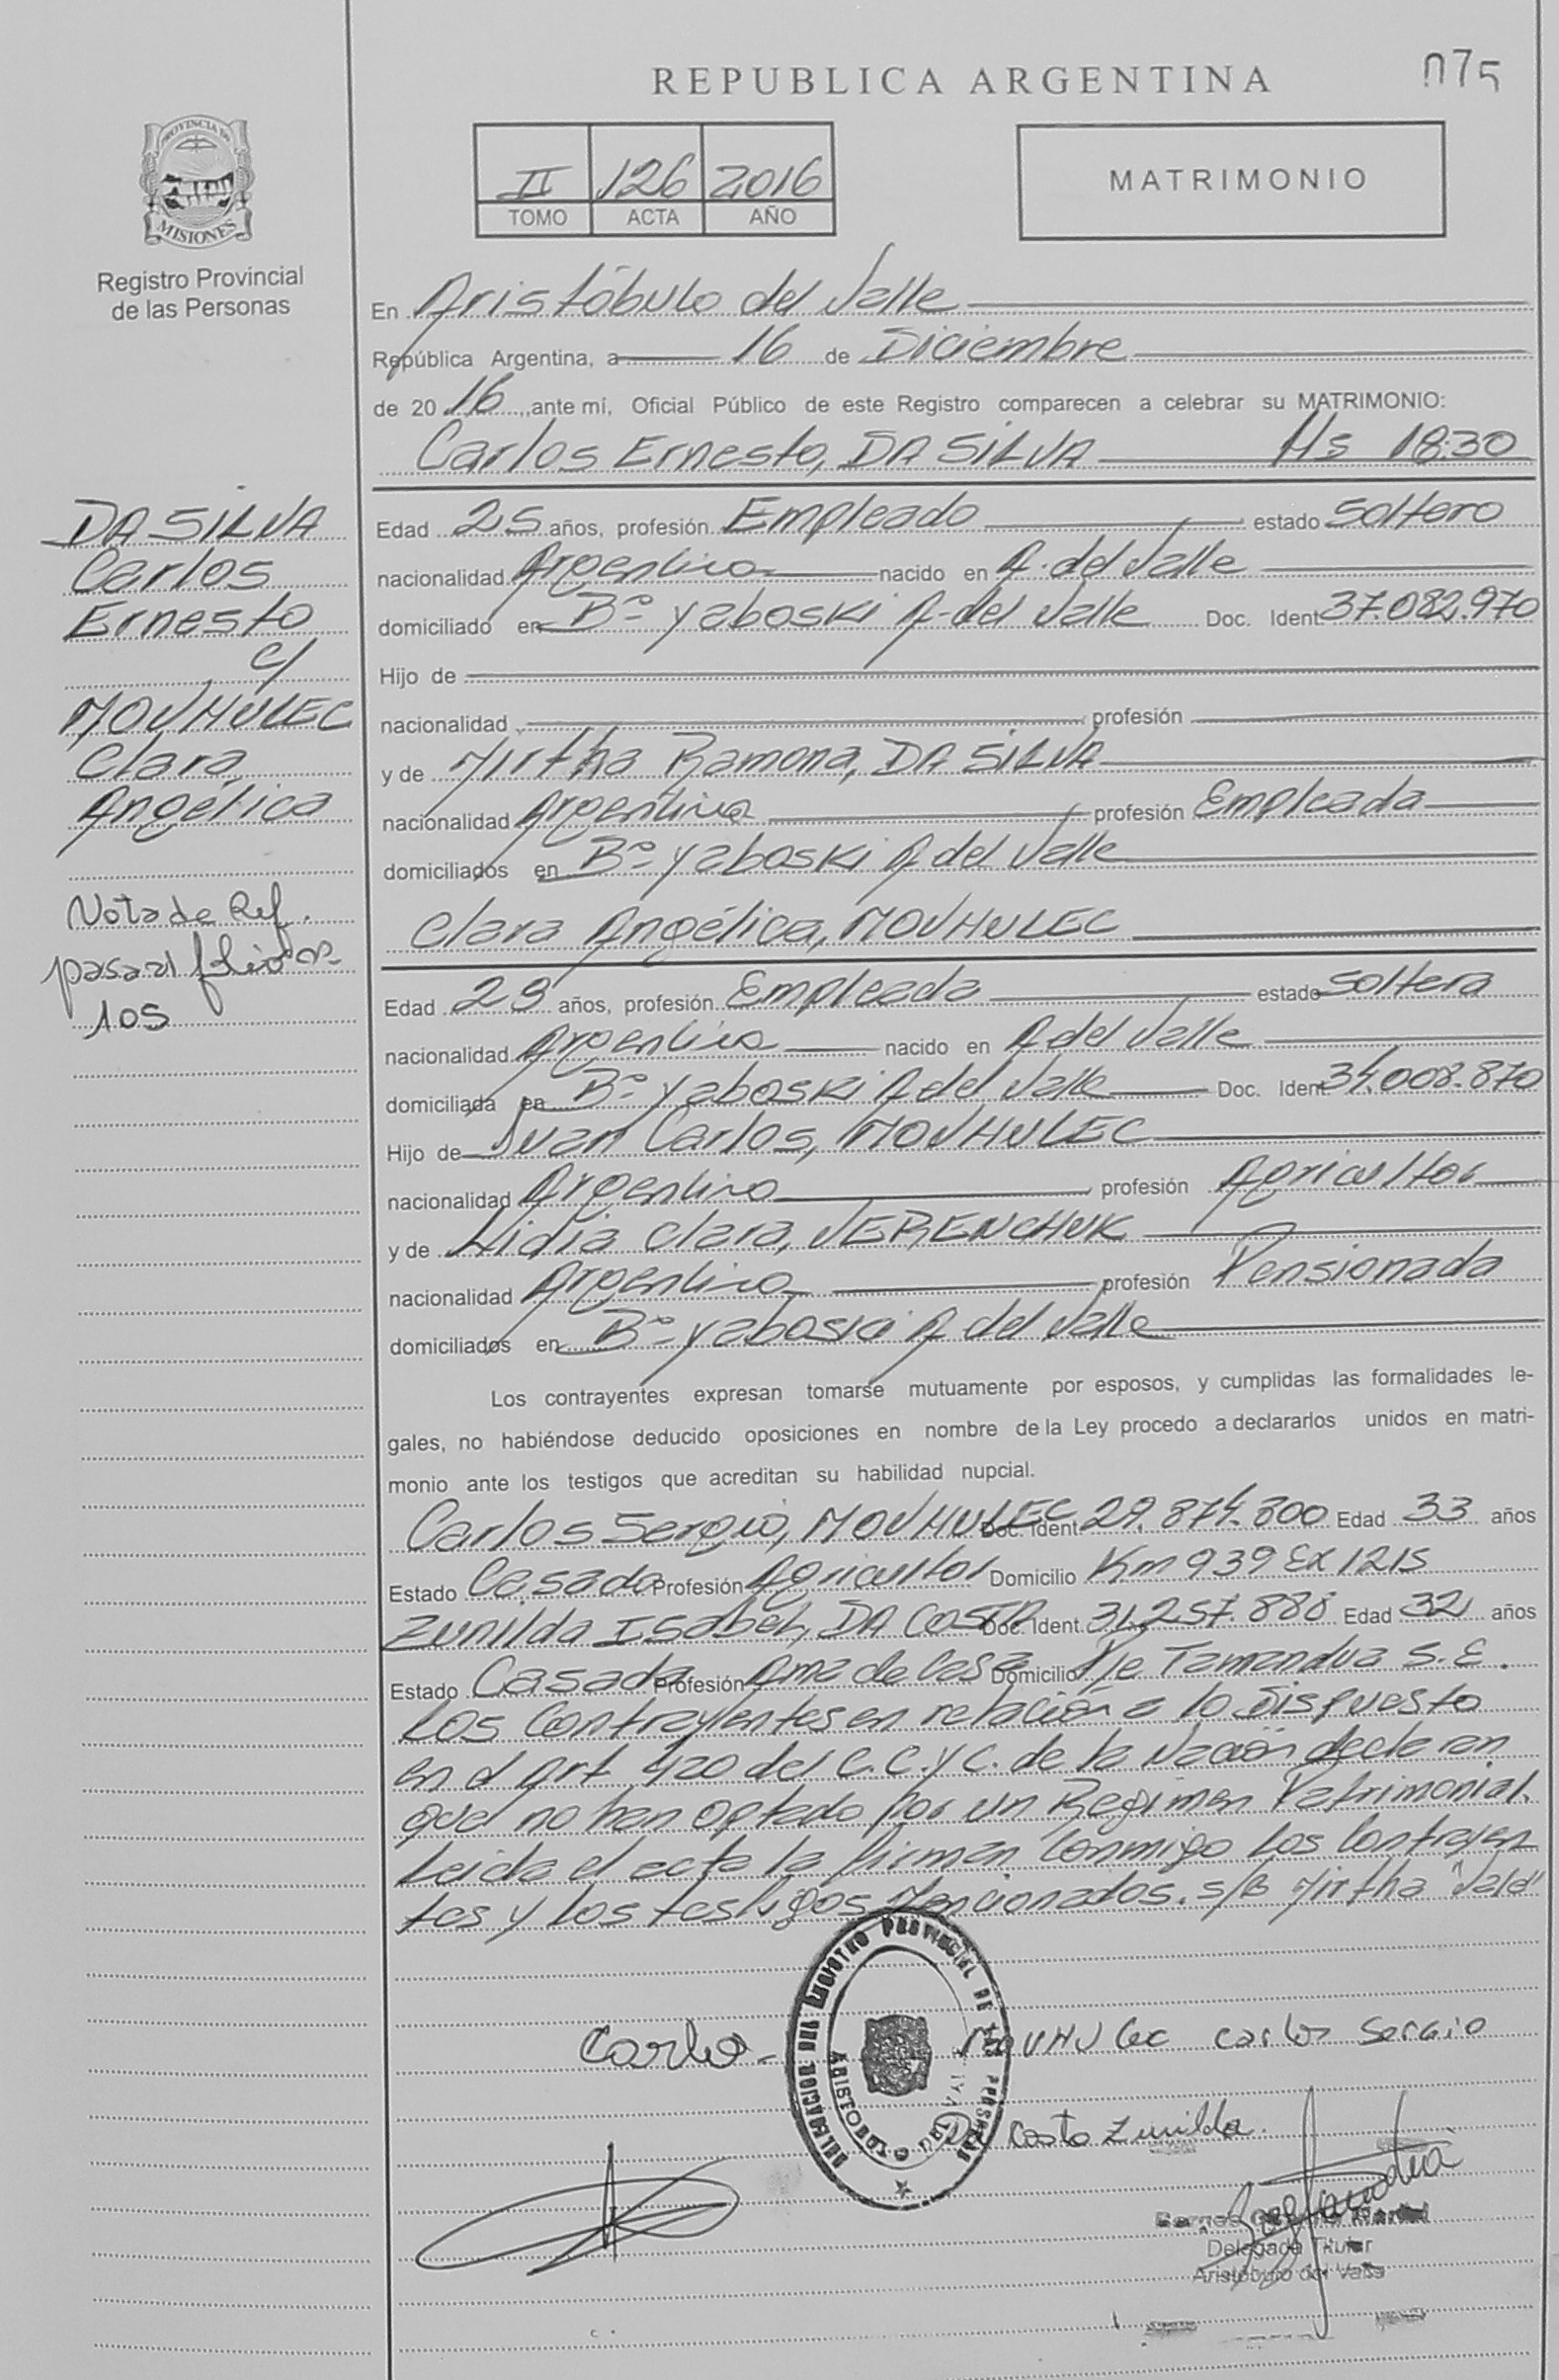 REPUBLICA ARGENTINA
075
PROVINCIA DE
MISIONES
Registro Provincial
de las Personas
II 126 2016
TOMO ACTA AÑO
MATRIMONIO
En Aristóbulo del Valle
República Argentina, a 16 de Diciembre
de 2016, ante mí, Oficial Público de este Registro comparecen a celebrar su MATRIMONIO:
Carlos Ernesto, DA SILVA Hs 18:30
DA SILVA
Carlos
Ernesto
c/
MOVHULEC
Clara
Angélica
Nota de Ref.
pasa al folio nº
105
Edad 25 años, profesión Empleado estado Soltero
nacionalidad Argentina nacido en A. del Valle
domiciliado en Bº Yaboski A. del Valle Doc. Ident. 37.082.970
Hijo de
nacionalidad profesión
y de Mirtha Ramona, DA SILVA
nacionalidad Argentina profesión Empleada
domiciliados en Bº Yaboski A del Valle
Clara Angélica, MOVHULEC
Edad 29 años, profesión Empleada estado Soltera
nacionalidad Argentina nacido en A del Valle
domiciliada en Bº Yaboski A del Valle Doc. Ident. 34.008.870
Hijo de Juan Carlos, MOVHULEC
nacionalidad Argentino profesión Agricultor
y de Lidia Clara, VERENCHUK
nacionalidad Argentina profesión Pensionada
domiciliados en Bº Yaboski A del Valle
Los contrayentes expresan tomarse mutuamente por esposos, y cumplidas las formalidades le-
gales, no habiéndose deducido oposiciones en nombre de la Ley procedo a declararlos unidos en matri-
monio ante los testigos que acreditan su habilidad nupcial.
Carlos Sergio, MOVHULEC Doc. Ident. 29.874.800 Edad 33 años
Estado Casado Profesión Agricultor Domicilio Km 939 Ex 1215
Zunilda Isabel, DA COSTA Doc. Ident. 31.257.888 Edad 32 años
Estado Casada Profesión Ama de Casa Domicilio Pje Tamandua S.E.
Los Contrayentes en relación a lo Dispuesto
en el Art 420 del C.C.y C. de la Nación declaran
que no han optado por un Regimen Patrimonial.
Leida el acta la firman Conmigo Los Contrayen
tes y Los testigos Mencionados. s/B Mirtha "Vale"
DELEGACION DEL REGISTRO PROVINCIAL DE LAS PERSONAS
Carlos
MOVHULEC Carlos Sergio
Da Costa Zunilda.
Delegada Titular
Aristóbulo del Valle